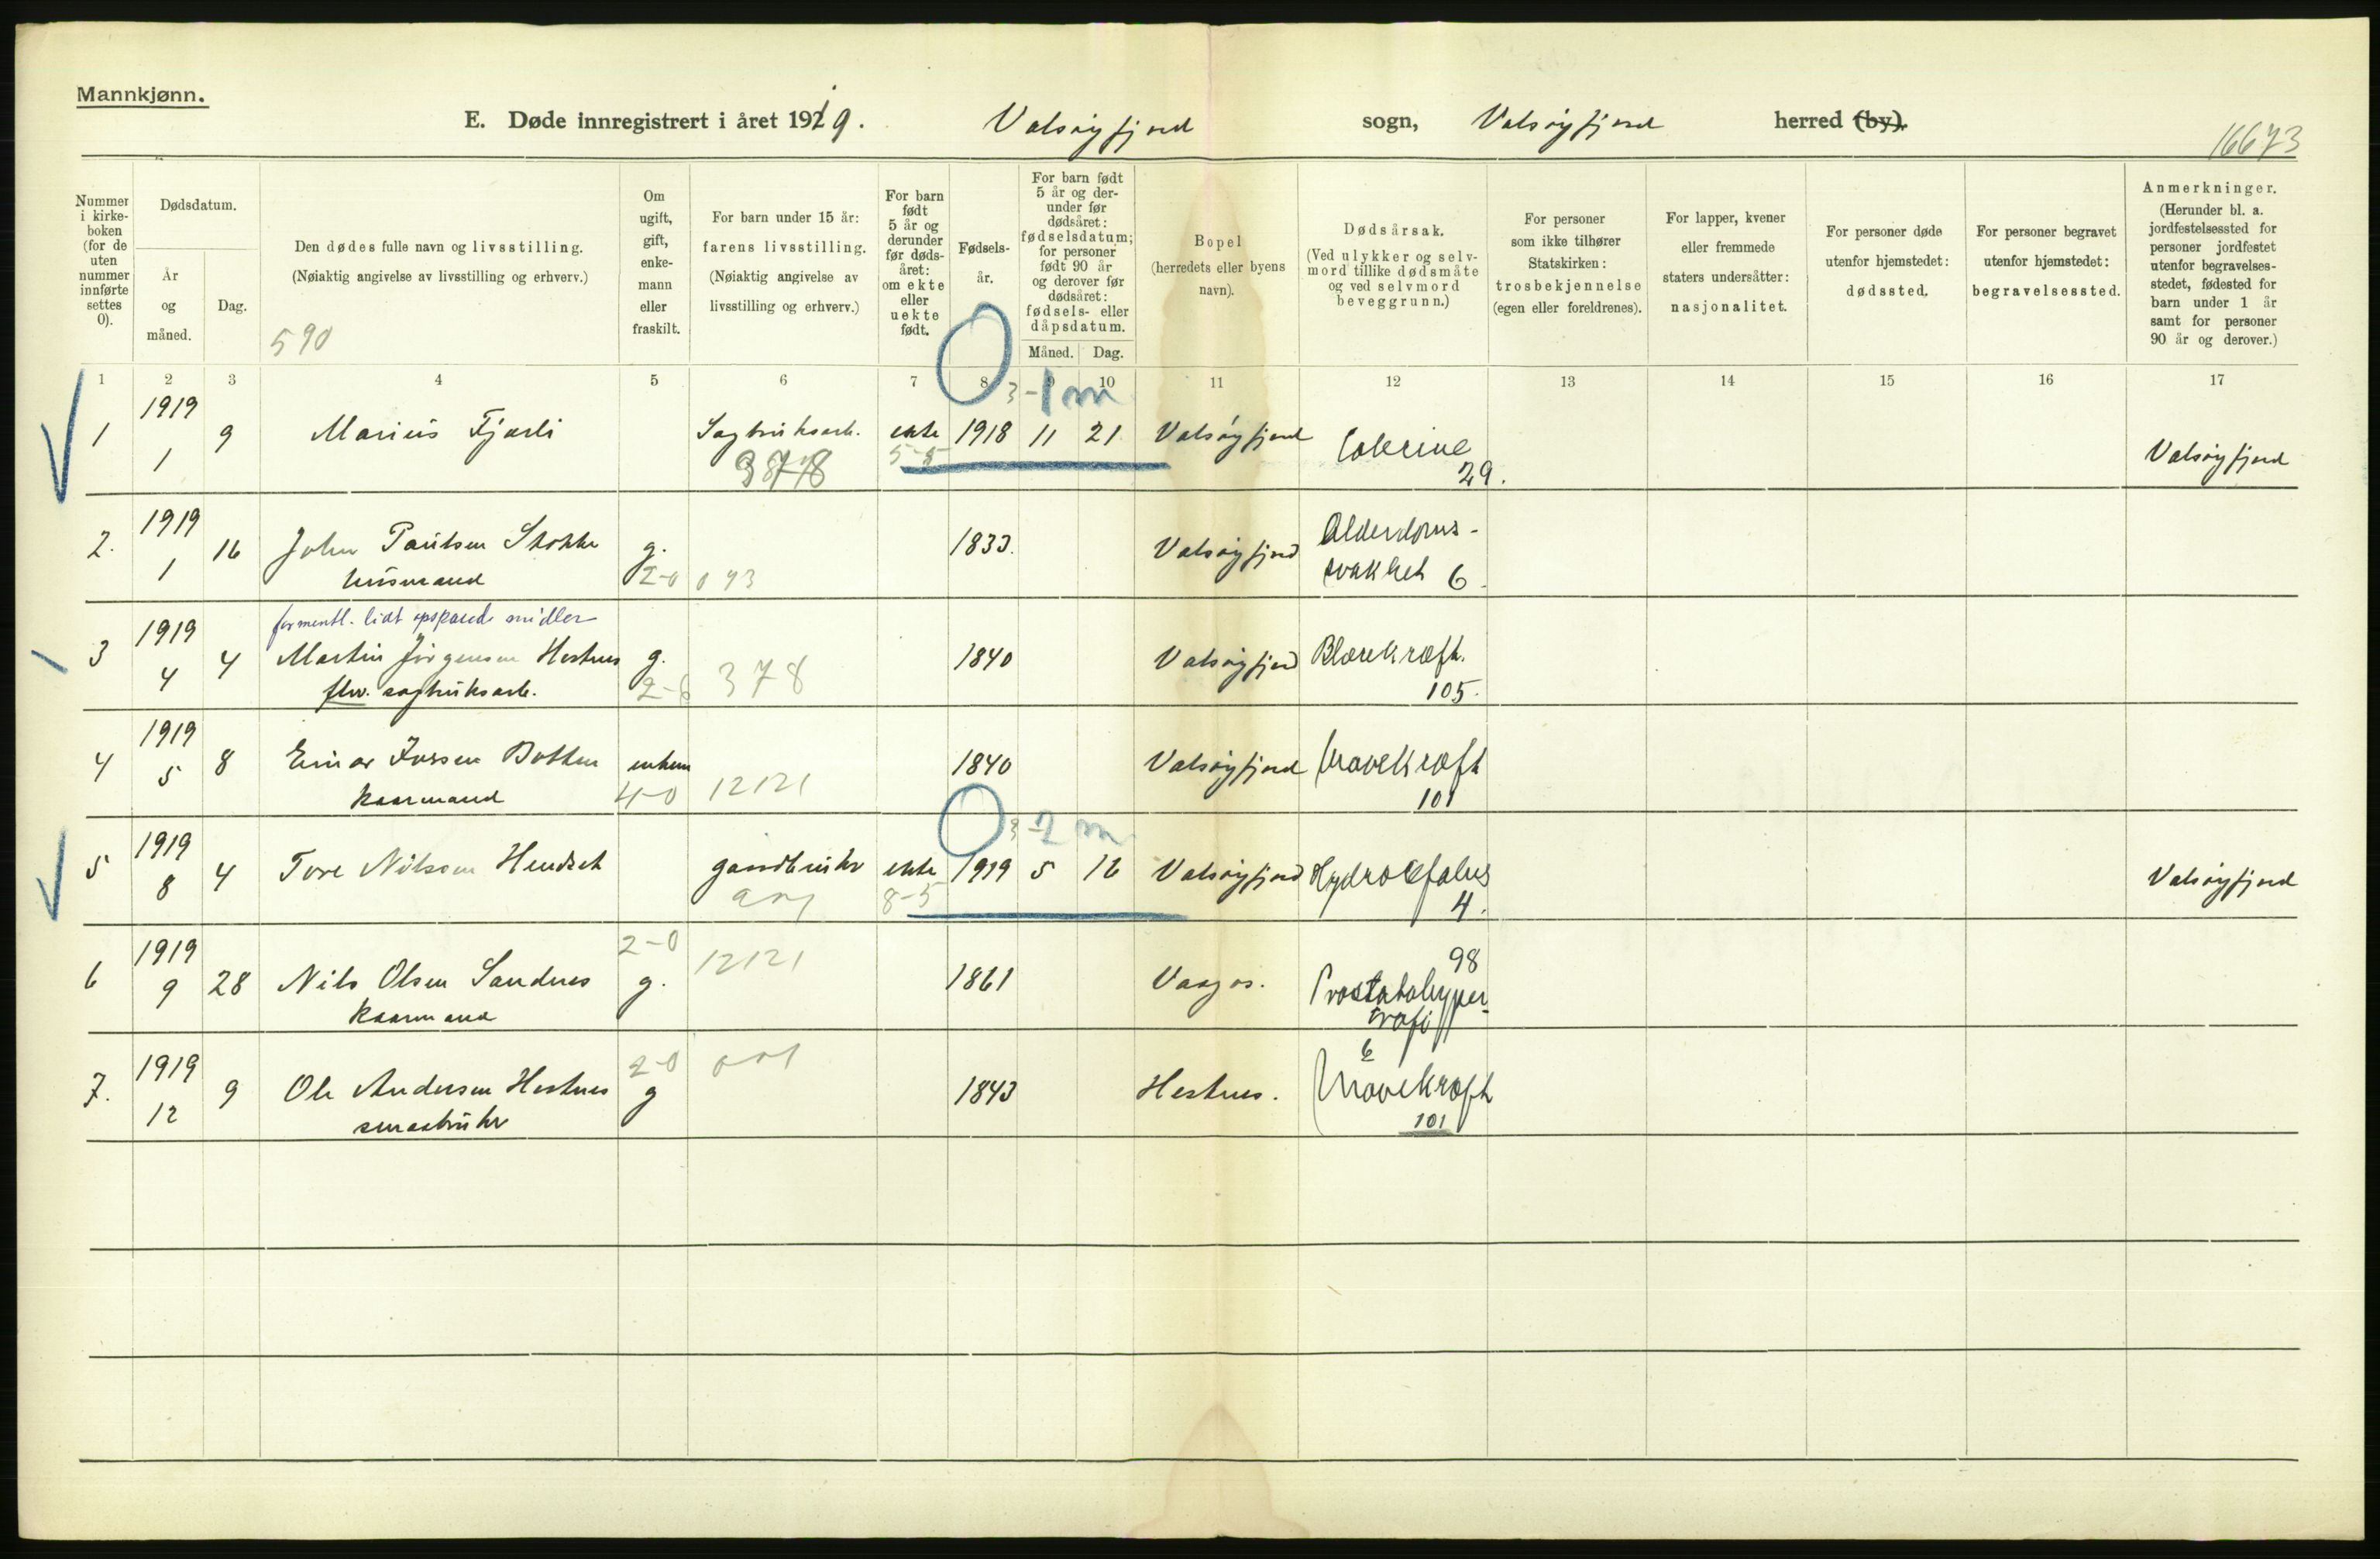 Mannkjønn.
E. Døde innregistrert i året 1919. Valsøyfjord sogn, Valsøyfjord herred (by).
16673
Nummer i kirkeboken (for de uten nummer innførte settes 0).
Dødsdatum.
År og måned.
Dag.
Den dødes fulle navn og livsstilling.
(Nøiaktig angivelse av livsstilling og erhverv.)
590
Om ugift, gift, enkemann eller fraskilt.
For barn under 15 år: farens livsstilling.
(Nøiaktig angivelse av livsstilling og erhverv.)
For barn født 5 år og derunder før dødsåret: om ekte eller uekte født.
Fødselsår.
For barn født 5 år og derunder før dødsåret: fødselsdatum; for personer født 90 år og derover før dødsåret: fødsels- eller dåpsdatum.
Måned.
Dag.
Bopel
(herredets eller byens navn).
Dødsårsak.
(Ved ulykker og selvmord tillike dødsmåte og ved selvmord beveggrunn.)
For personer som ikke tilhører Statskirken: trosbekjennelse (egen eller foreldrenes).
For lapper, kvener eller fremmede staters undersåtter: nasjonalitet.
For personer døde utenfor hjemstedet: dødssted.
For personer begravet utenfor hjemstedet: begravelsessted.
Anmerkninger.
(Herunder bl. a. jordfestelsessted for personer jordfestet utenfor begravelsesstedet, fødested for barn under 1 år samt for personer 90 år og derover.)
1 2 3 4 5 6 7 8 9 10 11 12 13 14 15 16 17
3-1 m
1 1919 1 9 Marius Fjærli Sagbruksarb. ekte 1918 11 21 Valsøyfjord Colerine Valsøyfjord
378 5-5 29.
2. 1919 1 16 John Paulsen Stokke g. 1833. Valsøyfjord Alderdoms-
husmand 2-0 093 svakhet 6.
formentl. lidt opsparede midler
3 1919 4 4 Martin Jørgensen Hestnes g. 1840 Valsøyfjord Blærekræft.
flw. sagbruksarb. 2-6 378 105.
4 1919 5 8 Einar Iversen Botten enkem 1840 Valsøyfjord Mavekræft
kaarmand 4-0 12121 101
3-2 m
5 1919 8 4 Tore Nilssen Hendset gaardbruker ekte 1919 5 16 Valsøyfjord Hydrocefalus Valsøyfjord
8-5 4.
2-0 12121 98
6 1919 9 28 Nils Olsen Sandnes g. 1861 Vaagos. Prostatahyper-
kaarmand trofi
2-0 001 6
7. 1919 12 9 Ole Andersen Hestnes g 1843 Hestnes. Mavekræft
smaabruker 101